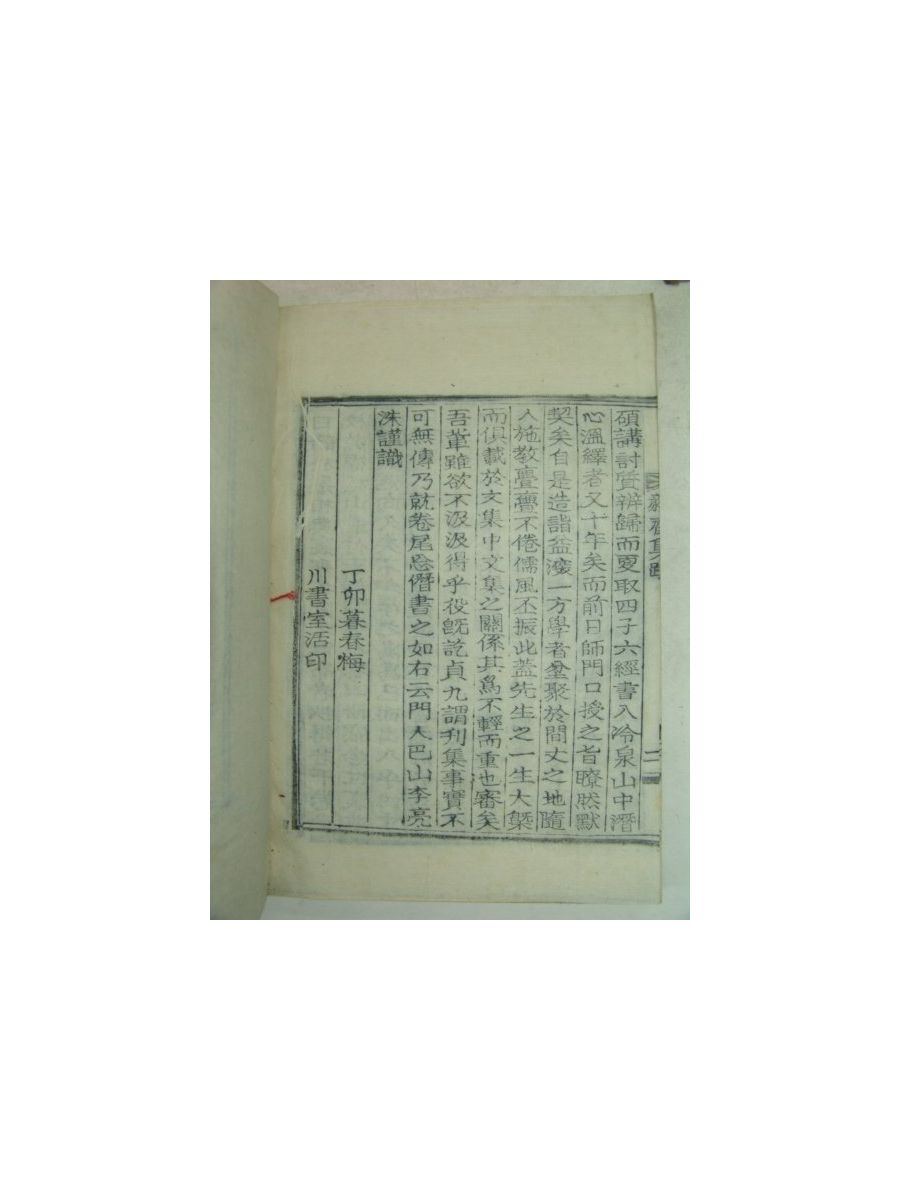 碩講討質辨歸而更取四子六經書入冷泉山中潛
心溫繹者又十年矣而前日師門口授之旨瞭然默
契矣自是造詣益深一方學者坌聚於間丈之地隨
人施教亹亹不倦儒風丕振此蓋先生之一生大槩
而俱載於文集中文集之關係其爲不輕而重也審矣
吾輩雖欲不汲汲得乎役旣訖貞九謂刋集事實不
可無傳乃就卷尾忘僭書之如右云門人巴山李亮
洙謹識
丁卯暮春梅
川書室活印
齋集
二